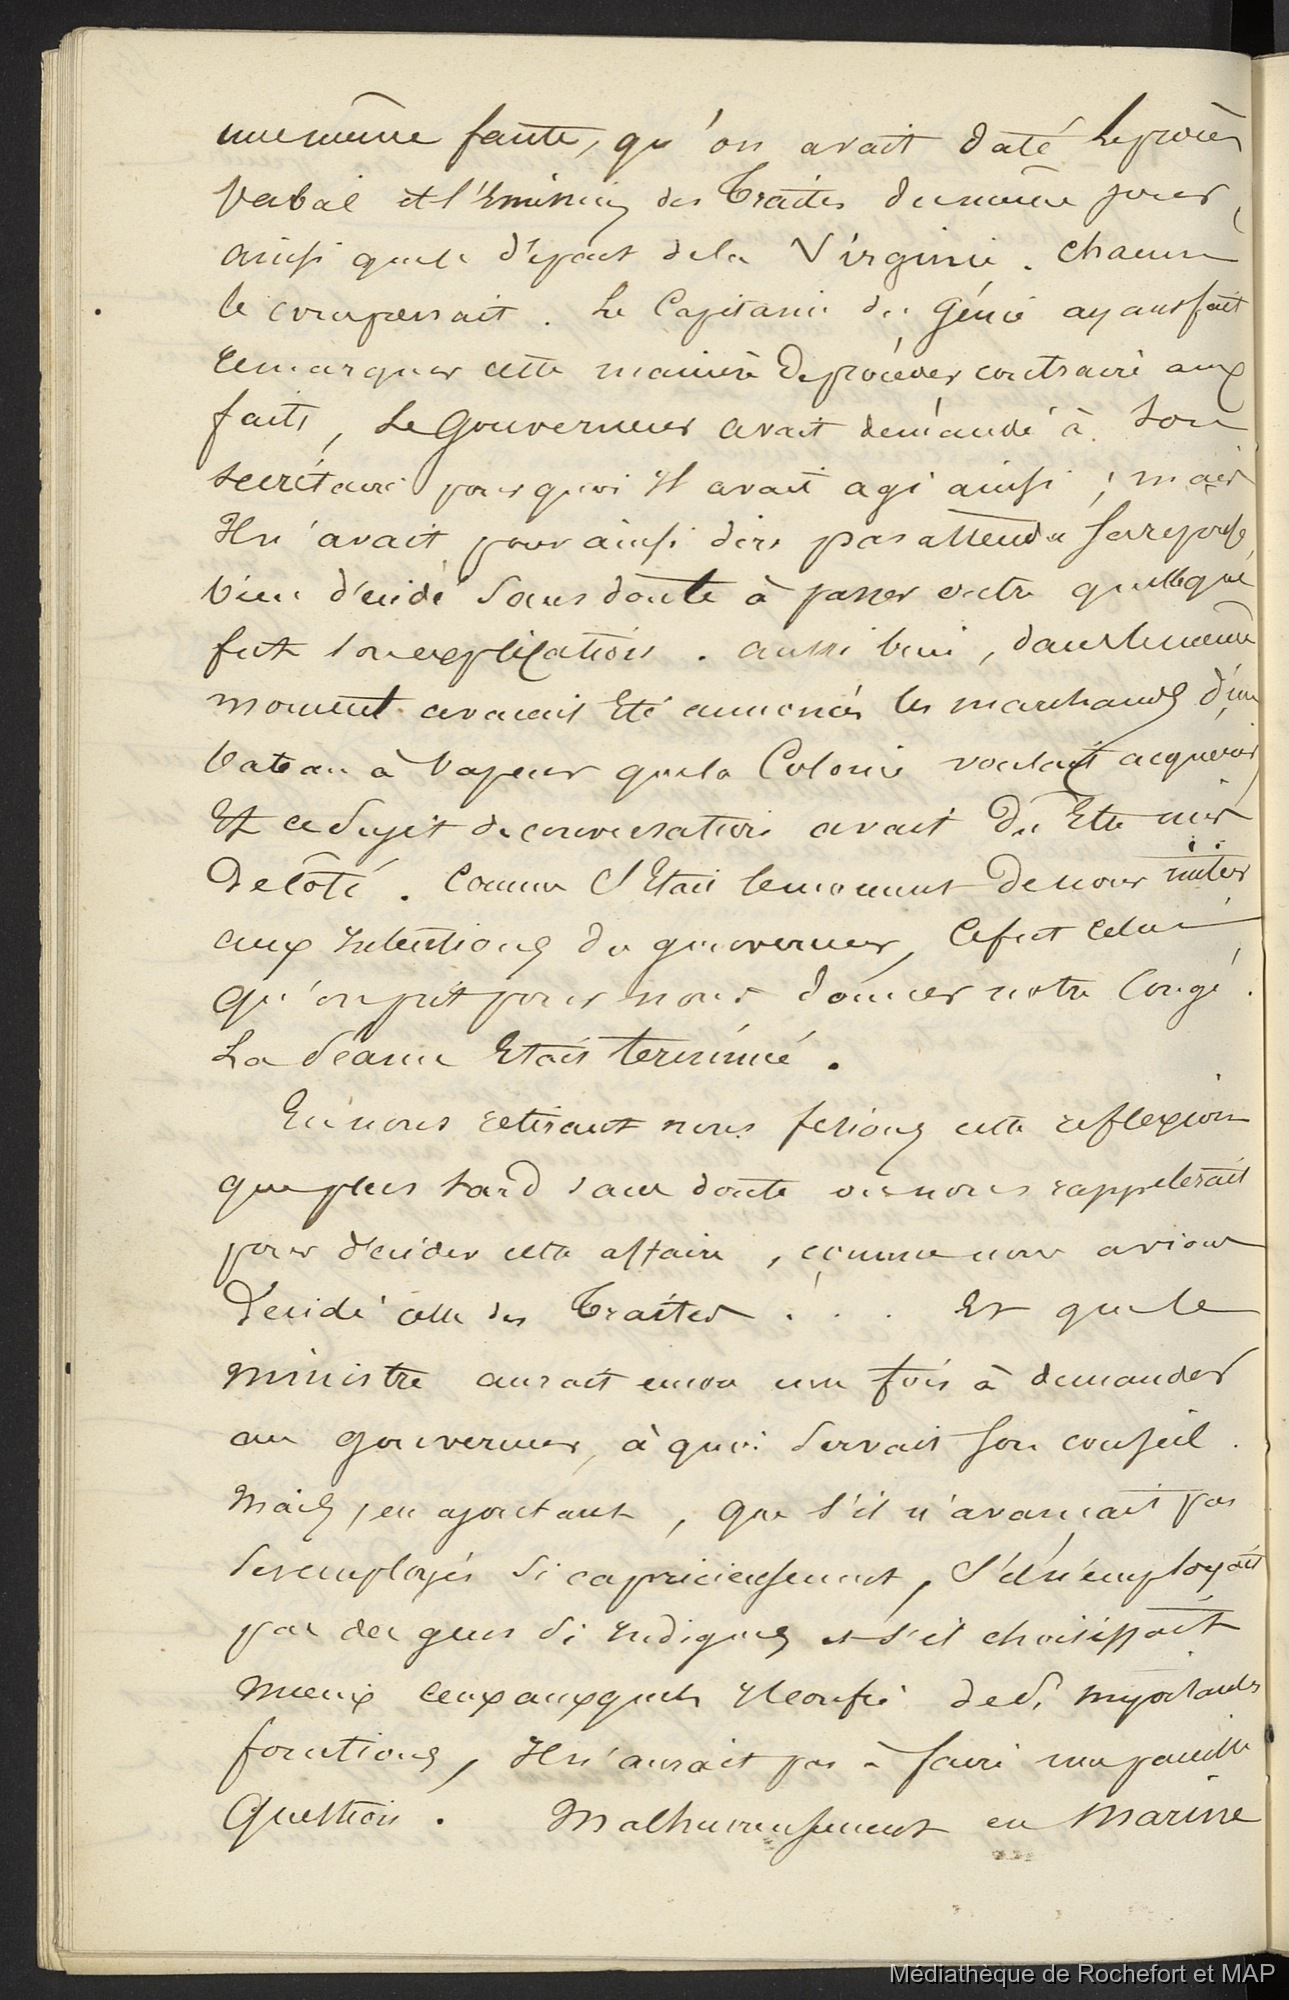 une même faute, qu'on avait daté le procès
verbal et l'Emission des Traites du même jour,
ainsi que le départ de la Virginie. chacun
le comprenait. Le Capitaine du Génie ayant fait
remarquer cette manière de procéder contraire aux
faits, Le Gouverneur avait demandé à son
secrétaire pourquoi Il avait agi ainsi ; mais
Il n'avait pour ainsi dire pas attendu sa reponse,
bien décidé sans doute à passer outre quelle que
fut son explication. aussi bien, dans le même
moment avaient Eté annoncés les marchands d'un
bateau à vapeur que la Colonie voulait acquérir,
Et ce sujet de conversation avait du Etre mis
de côté. Comme c'Etait le moment de nous initier
aux Intentions du gouverneur, ce fut celui
qu'on prit pour nous donner notre Congé.
La Séance Etait terminée.
En nous retirant nous fesions cette reflexion
que plus tard sans doute on nous rappelerait
pour décider cette affaire, comme nous avions
décidé celle des Traites . . . Et que le
ministre aurait encore une fois à demander
au gouverneur, à quoi servait son conseil.
Mais, en ajoutant, que s'il n'avançait pas
ses employés si capricieusement, s'il n'employait
pas des gens si Indignes et s'il choisissait
mieux ceux auxquels Il confie de si Importantes
fonctions, Il n'aurait pas à faire une pareille
Question. Malheureusement en Marine
Médiathèque de Rochefort et MAP